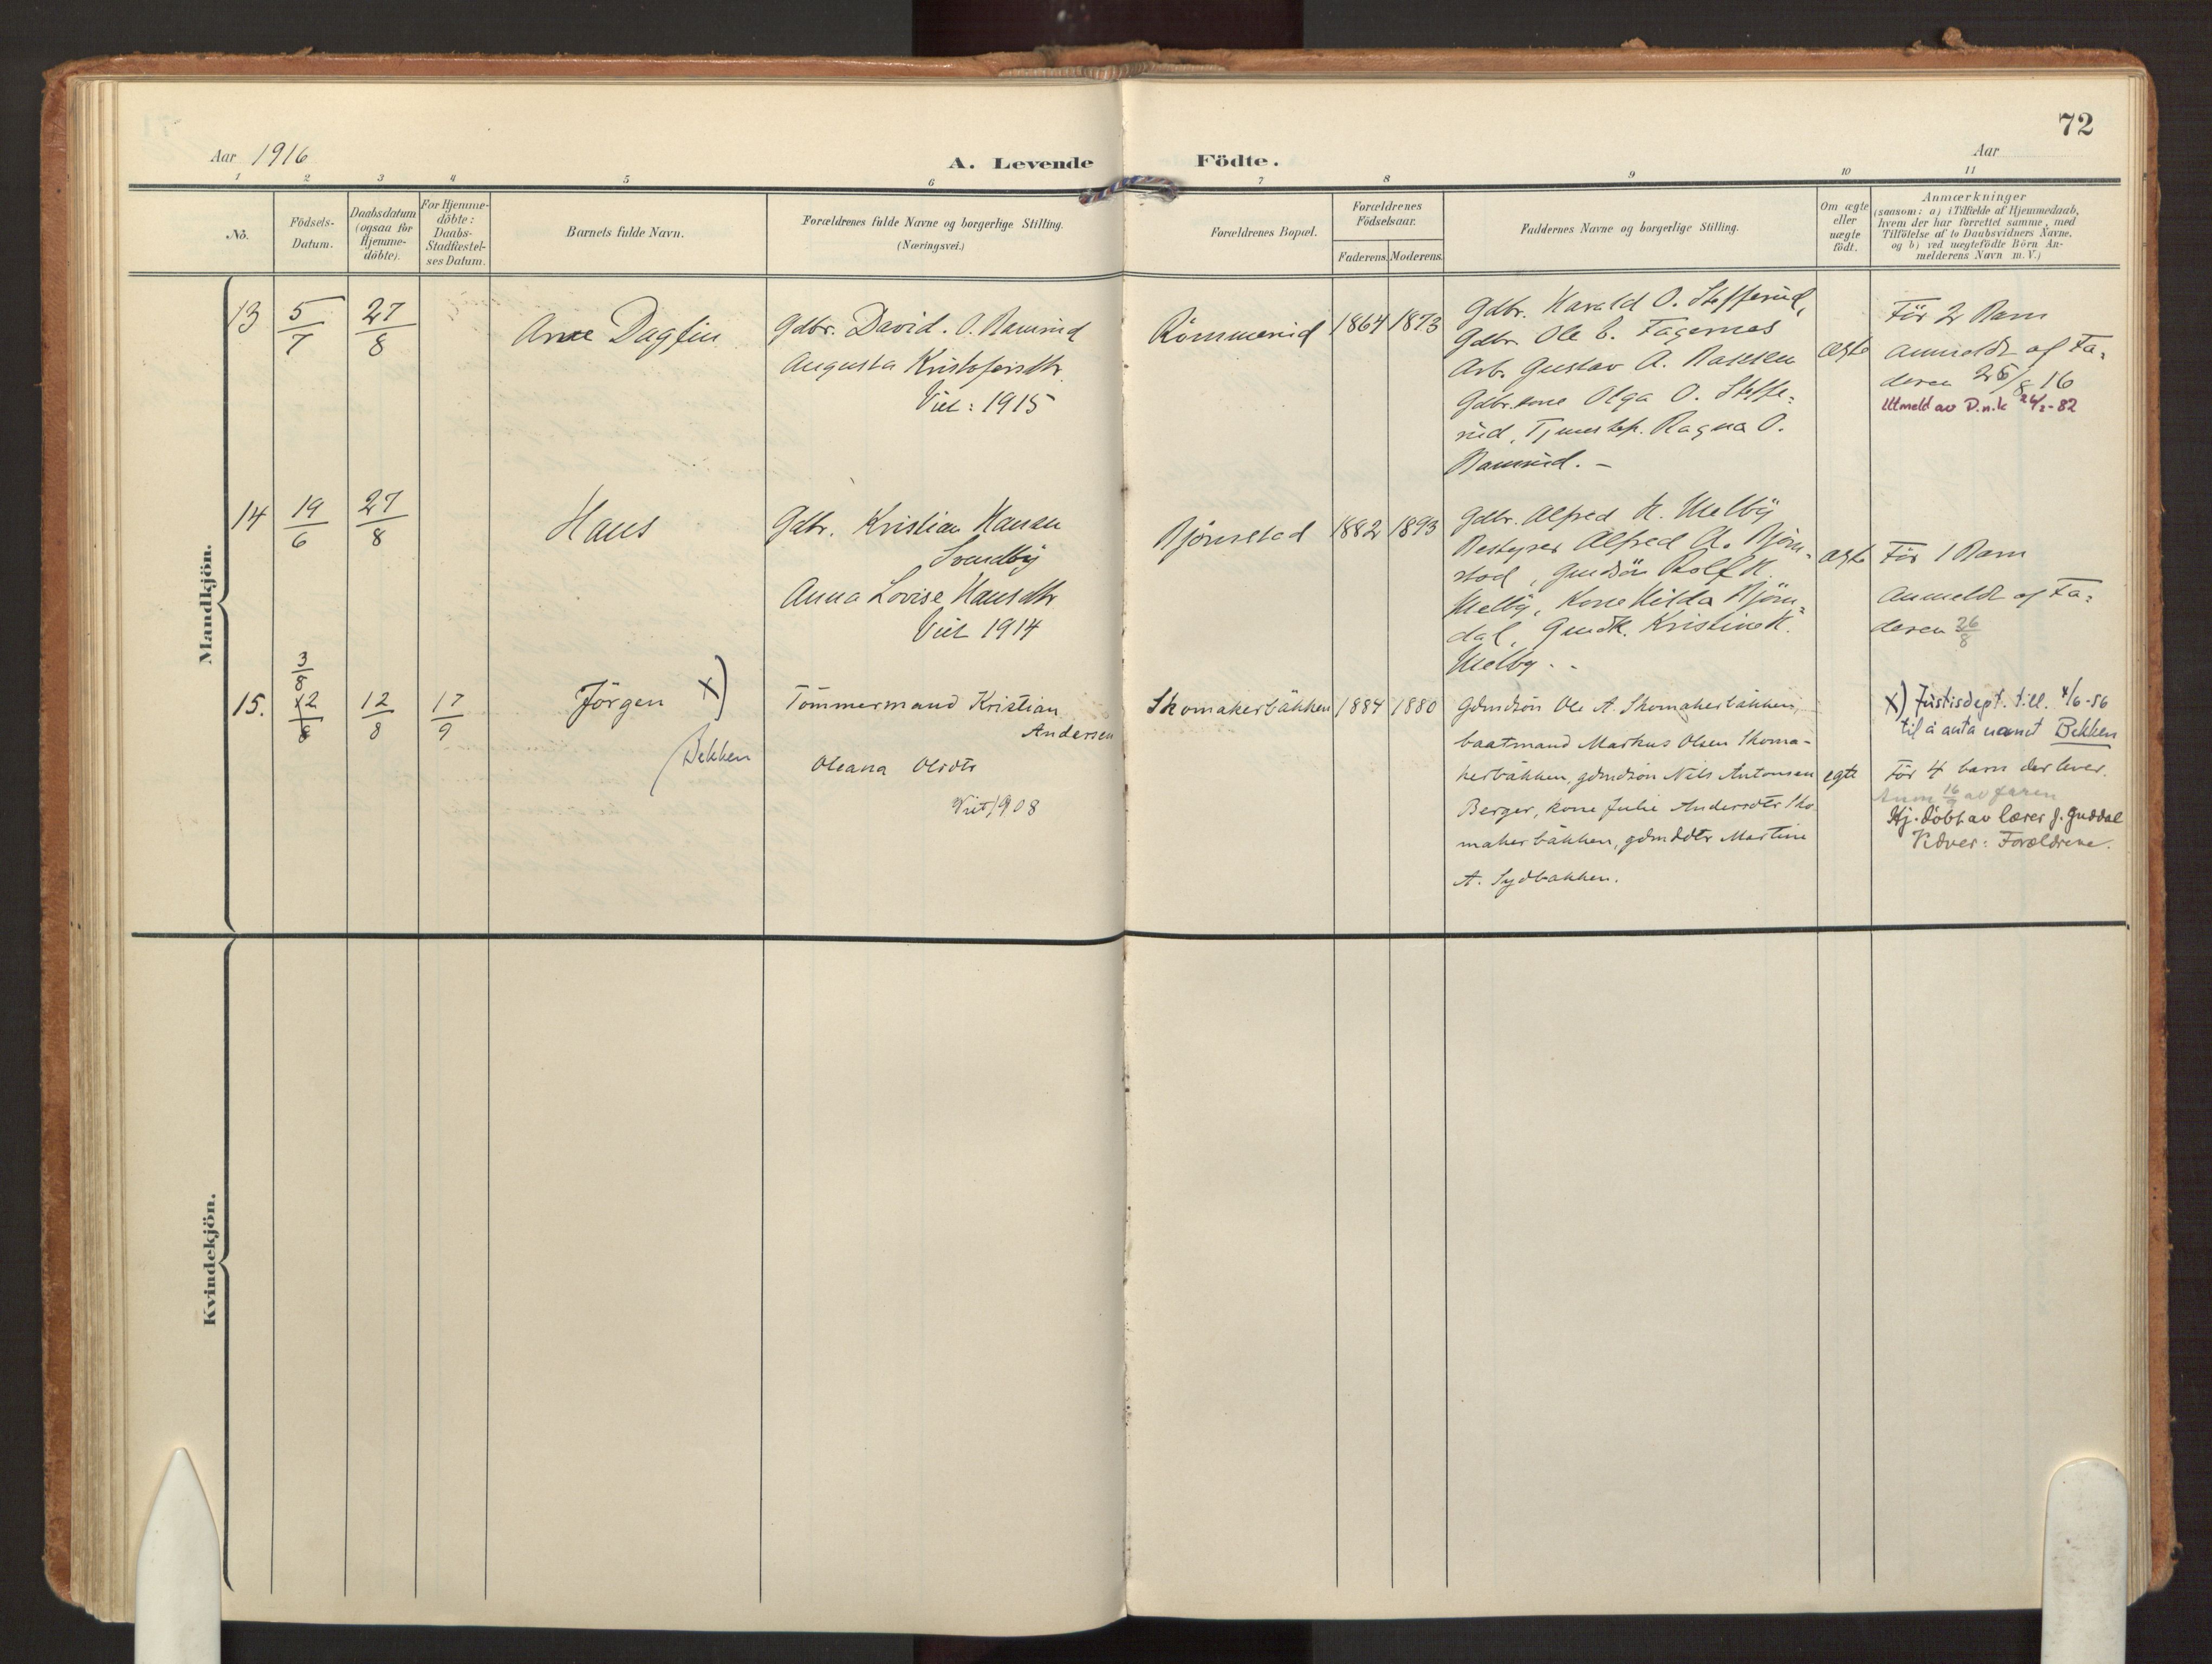 72
Aar 1916
A. Levende Födte.
Aar
1 2 3 4 5 6 7 8 9 10 11
No.
Födsels-
Datum.
Daabsdatum
(ogsaa för
Hjemme-
döbte).
For Hjemme-
döbte:
Daabs-
Stadfæstel-
ses Datum.
Barnets fulde Navn.
Forældrenes fulde Navne og borgerlige Stilling.
(Næringsvei.)
Forældrenes Bopæl.
Forældrenes
Födselsaar.
Faderens. Moderens.
Faddernes Navne og borgerlige Stilling.
Om ægte
eller
uægte
födt.
Anmærkninger
(saasom: a) i Tilfælde af Hjemmedaab,
hvem der har forrettet samme, med
Tilföielse af to Daabsvidners Navne,
og b) ved uægtefödte Börn An-
melderens Navn m. V.)
Mandkjön.
13
5/7
27/8
Arne Dagfin
Gdbr. David. O. Ramsrud
Augusta Kristofersdtr
Viet: 1915
Römmerud
1864 1873
Gdbr. Harald O. Stefferud,
Gdbr. Ole E. Fagernes
Arb. Gustav A. Hansen
Gdbr.kone Olga O. Steffe-
rud, Tjenestep. Ragna O.
Ramsrud. -
ægte
För 2 Barn
anmeldt af Fa-
deren 26/8 16
Utmeldt av D.n.k 24/2-82
14
19/6
27/8
Hans
Gdbr. Kristian Hansen
Svendby
Anna Lovise Hansdtr
Viet 1914
Björnstad
1882 1893
Gdbr. Alfred K. Melby
Bestyrer Alfred A. Björn-
stad, Gmdsön Rolf K.
Melby, Kone Hilda Björn-
dal, Gmdt. Kristine K.
Melby. -
ægte
För 1 Barn
Anmeldt af Fa-
deren 26/8
15.
3/8
12/8
12/8
17/9
Jörgen x)
Bekken
Tömmermand Kristian
Andersen
Oleana Olsdtr
Viet 1908
Skomakerbäkken
1884 1880
Gdmdsön Ole A. Skomakerbäkken,
baatmand Markus Olsen Skoma-
kerbäkken, gdmdsön Nils Antonsen
Berger, kone Julie Andersdtr Sko
makerbäkken, gdmddtr Martine
A. Sydbakken.
egte
x) Justisdept. till. 4/6-56
til å anta navnet Bekken
För 4 barn der lever.
Anm 16/9 av faren
Hj. döbt av lærer J. Guddal
Vidner: Forældrene.
Kvindekjön.